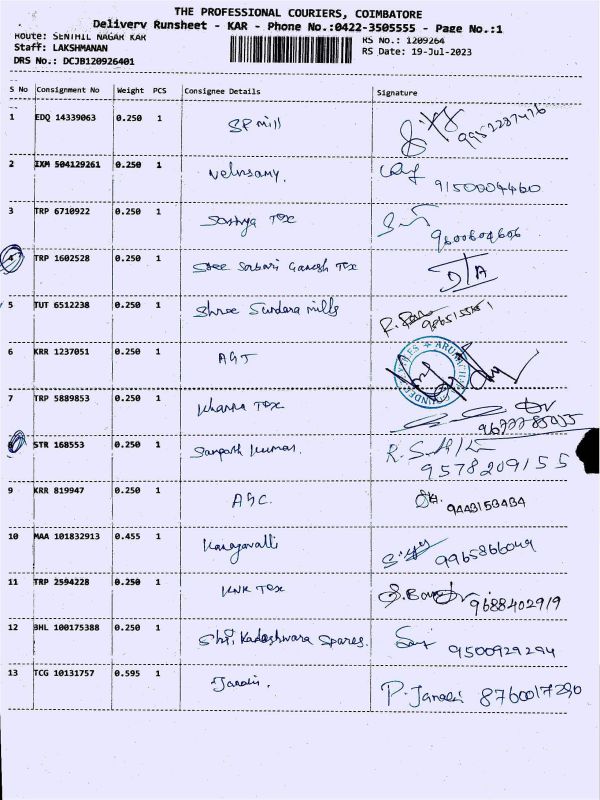 THE PROFESSIONAL COURIERS, COIMBATORE
Delivery Runsheet - KAR - Phone No.:0422-3505555 - Page No.:1
Route: SENTHIL NAGAR KAR
RS No.: 1209264
Staff: LAKSHMANAN
RS Date: 19-Jul-2023
DRS No.: DCJB120926401
S No Consignment No Weight PCS Consignee Details Signature
1 EDQ 14339063 0.250 1 SP mill 9952287476
2 IXM 504129261 0.250 1 Velusamy. 9150004460
3 TRP 6710922 0.250 1 Sathya Tex 9600604606
4 TRP 1602528 0.250 1 Sree Sabari Ganesh Tex D/A
5 TUT 6512238 0.250 1 Shree Sundara mills
6 KRR 1237051 0.250 1 AGT
7 TRP 5889853 0.250 1 Khanna Tex
8 STR 168553 0.250 1 Sampath Kumar. 9578209155
9 KRR 819947 0.250 1 AGC. 9443153434
10 MAA 101832913 0.455 1 Kanagavalli 9965866049
11 TRP 2594228 0.250 1 KNK Tex 9688402919
12 BHL 100175388 0.250 1 Shri Kadeshwara Spares. 9500929294
13 TCG 10131757 0.595 1 Janaki. P. Janaki 8760017290